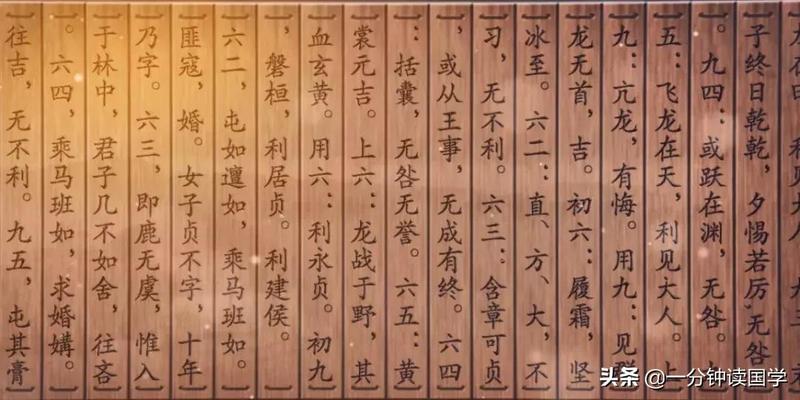 子终日乾乾，夕惕若厉，无咎
。九四：或跃在渊，无咎。
五：飞龙在天，利见大人。上
九：亢龙，有悔。用九：见
龙无首，吉。初六：履霜，坚
冰至。六二：直、方、大，不
习，无不利。六三：含章可贞
，或从王事，无成有终。六四
：括囊，无咎无誉。六五：黄
裳元吉。上六：龙战于野，其
血玄黄。用六：利永贞。初九
，磐桓，利居贞。利建侯。
六二，屯如邅如，乘马班如。
匪寇，婚。女子贞不字，十年
乃字。六三，即鹿无虞，惟入
于林中，君子几不如舍，往吝
。六四，乘马班如，求婚媾。
往吉，无不利。九五，屯其膏
头条 @一分钟读国学